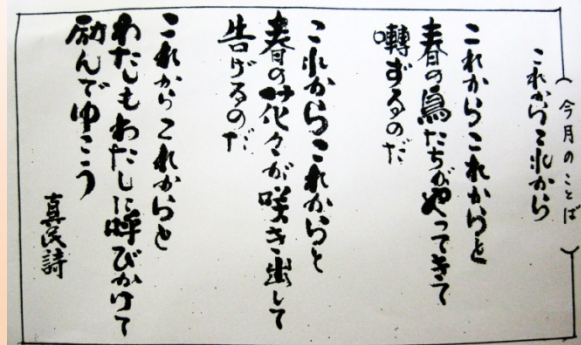 （今月のことば）
これからこれから
これからこれからと
春の鳥たちがやってきて
囀ずるのだ
これからこれからと
春の花々が咲き出して
告げるのだ
これからこれからと
わたしもわたしに呼びかけて
励んでゆこう
真民詩